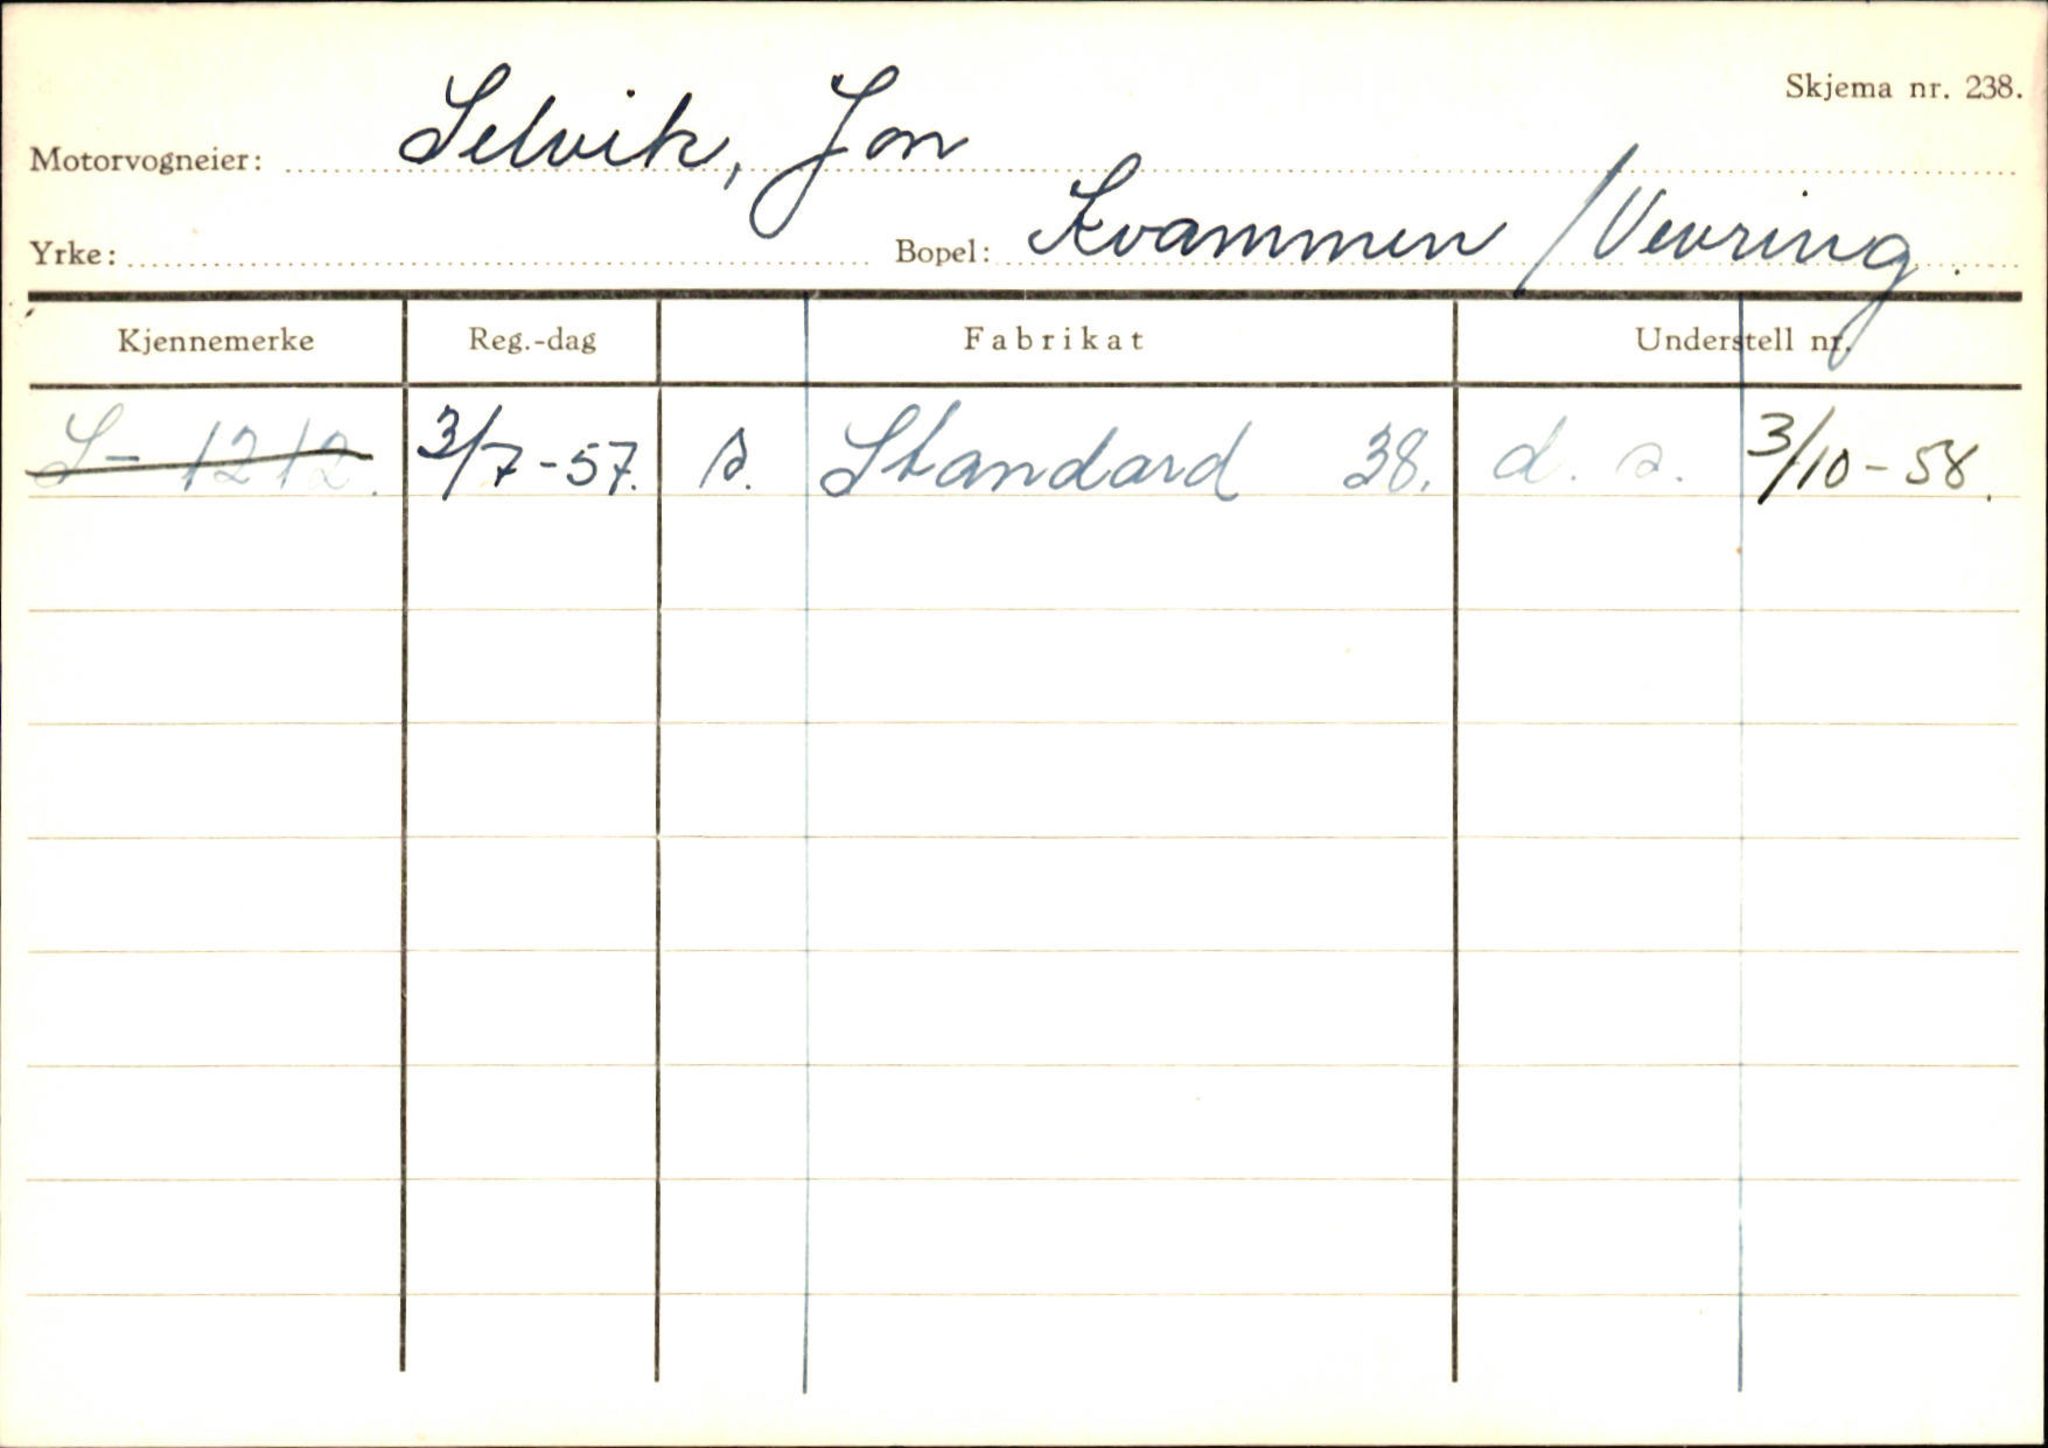 Skjema nr. 238.
Motorvogneier: Selvik, Jon
Yrke: Bopel: Kvammen / Vevring.
Kjennemerke Reg.-dag Fabrikat Understell nr.
S- 1212. 3/7-57. s. Standard 38. d. s. 3/10-58.